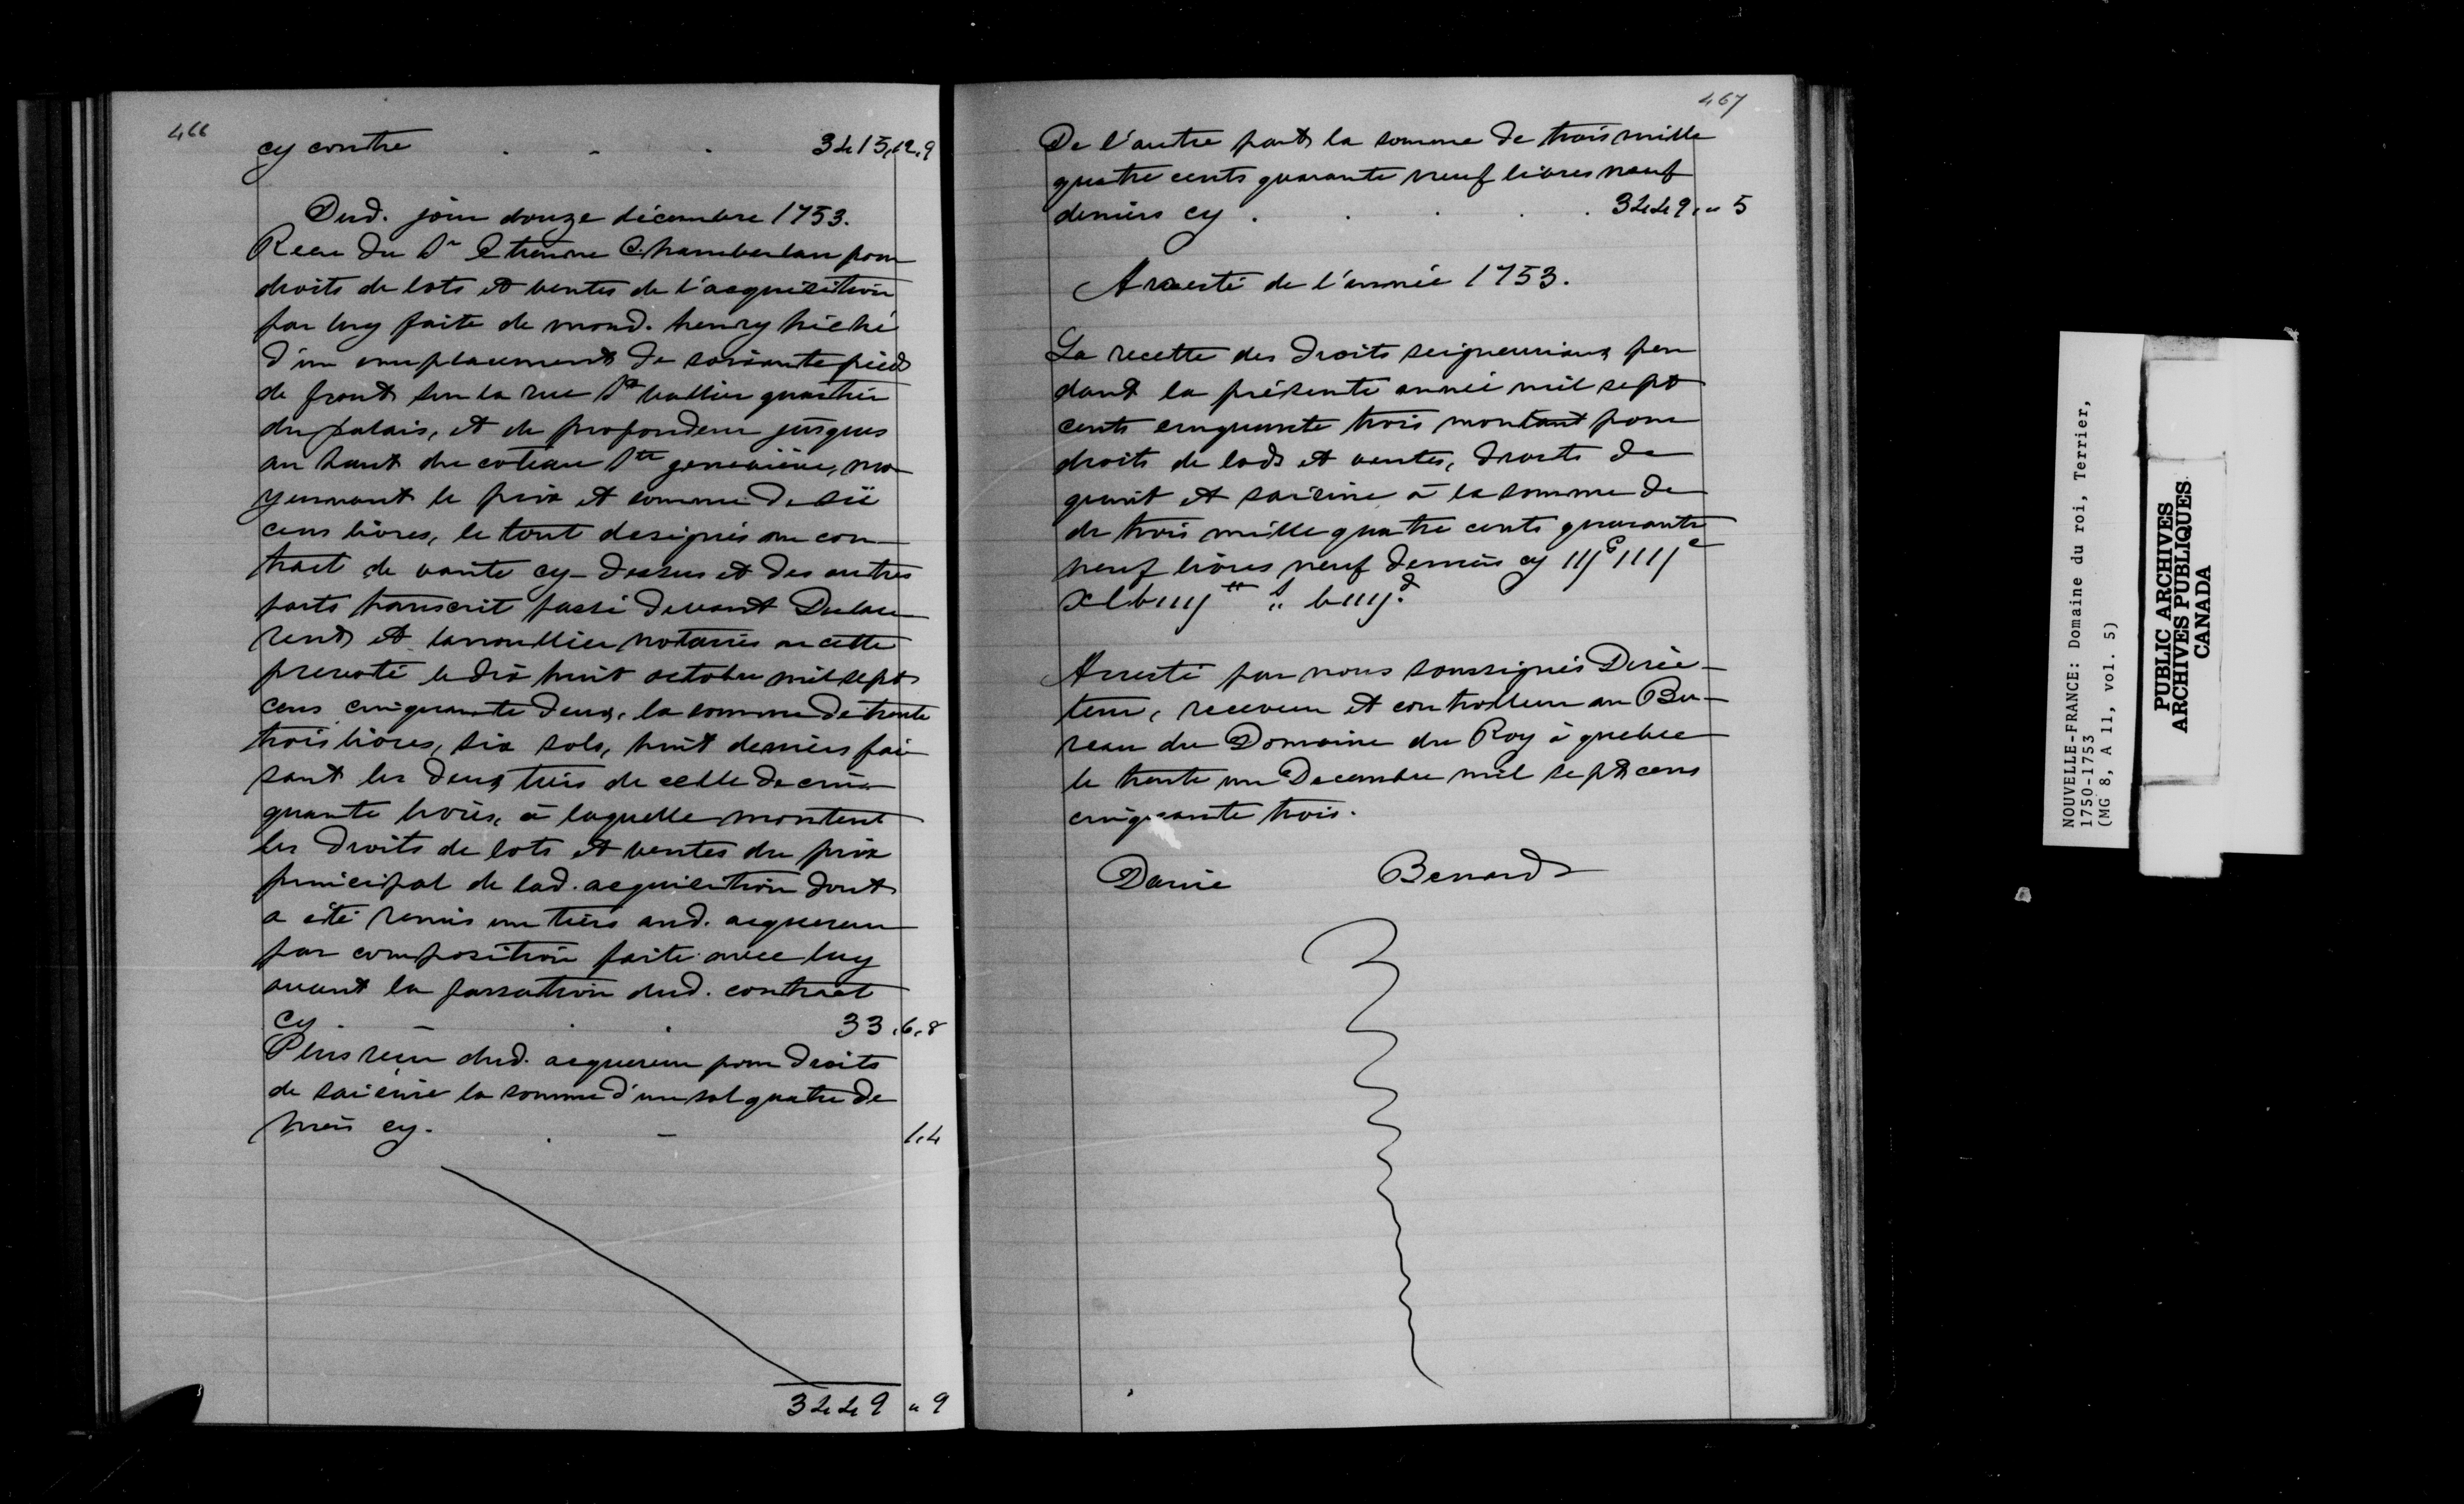 466
cy contre . - . 3415,12,9
Dud. jour douze décembre 1753.
Recu du Sr Etienne Chamberlan pour
droits de lots et ventes de l'acquisition
par luy faite de mond. henry hiché
d'un emplacement de soixante pieds
de front sur la rue St vallier quartier
du palais, et de profondeur jusques
au haut du coteau Ste genevieve, mo
yennant le prix et somme de six
cens livres, le tout designé au con-
tract de vante cy-dessus et des autres
parts transcrit passé devant Dulau
rent et lanoullier notaires en cette
prevoté le dix huit octobre mil sept
cens cinquante deux, la somme de trente
trois livres, six sols, huit deniers fai
sant les deux tiers de celle de cin-
quante livres, à laquelle montent
les droits de lots et ventes du prix
principal de lad. acquisition dont
a été remis un tiers aud. acquereur
par composition faite avec luy
avant la passation dud. contract
cy . - . . 33,6,8
Plus recu dud. acquereur pour droits
de saisine la somme d'un sol quatre de
niers cy. . - 1,4
3449 " 9
467
De l'autre part la somme de trois mille
quatre cents quarante neuf livres neuf
deniers cy . . . . . 3449, " 5
Arresté de l'année 1753.
La recette des droits seigneuriaux pen
dant la présente année mil sept
cents cinquante trois montant pour
droits de lods et ventes, droits de
quint et saisine à la somme de
de trois mille quatre cents quarante
neuf livres neuf deniers cy
Arresté par nous soussignés Direc-
teur, receveur et controlleur au Bu-
reau du Domaine du Roy à quebec
le trente un Decembre mil sept cens
cinquante trois.
Benard
NOUVELLE-FRANCE: Domaine du roi, Terrier,
1750-1753
(MG 8, A 11, vol. 5)
PUBLIC ARCHIVES
ARCHIVES PUBLIQUES
CANADA